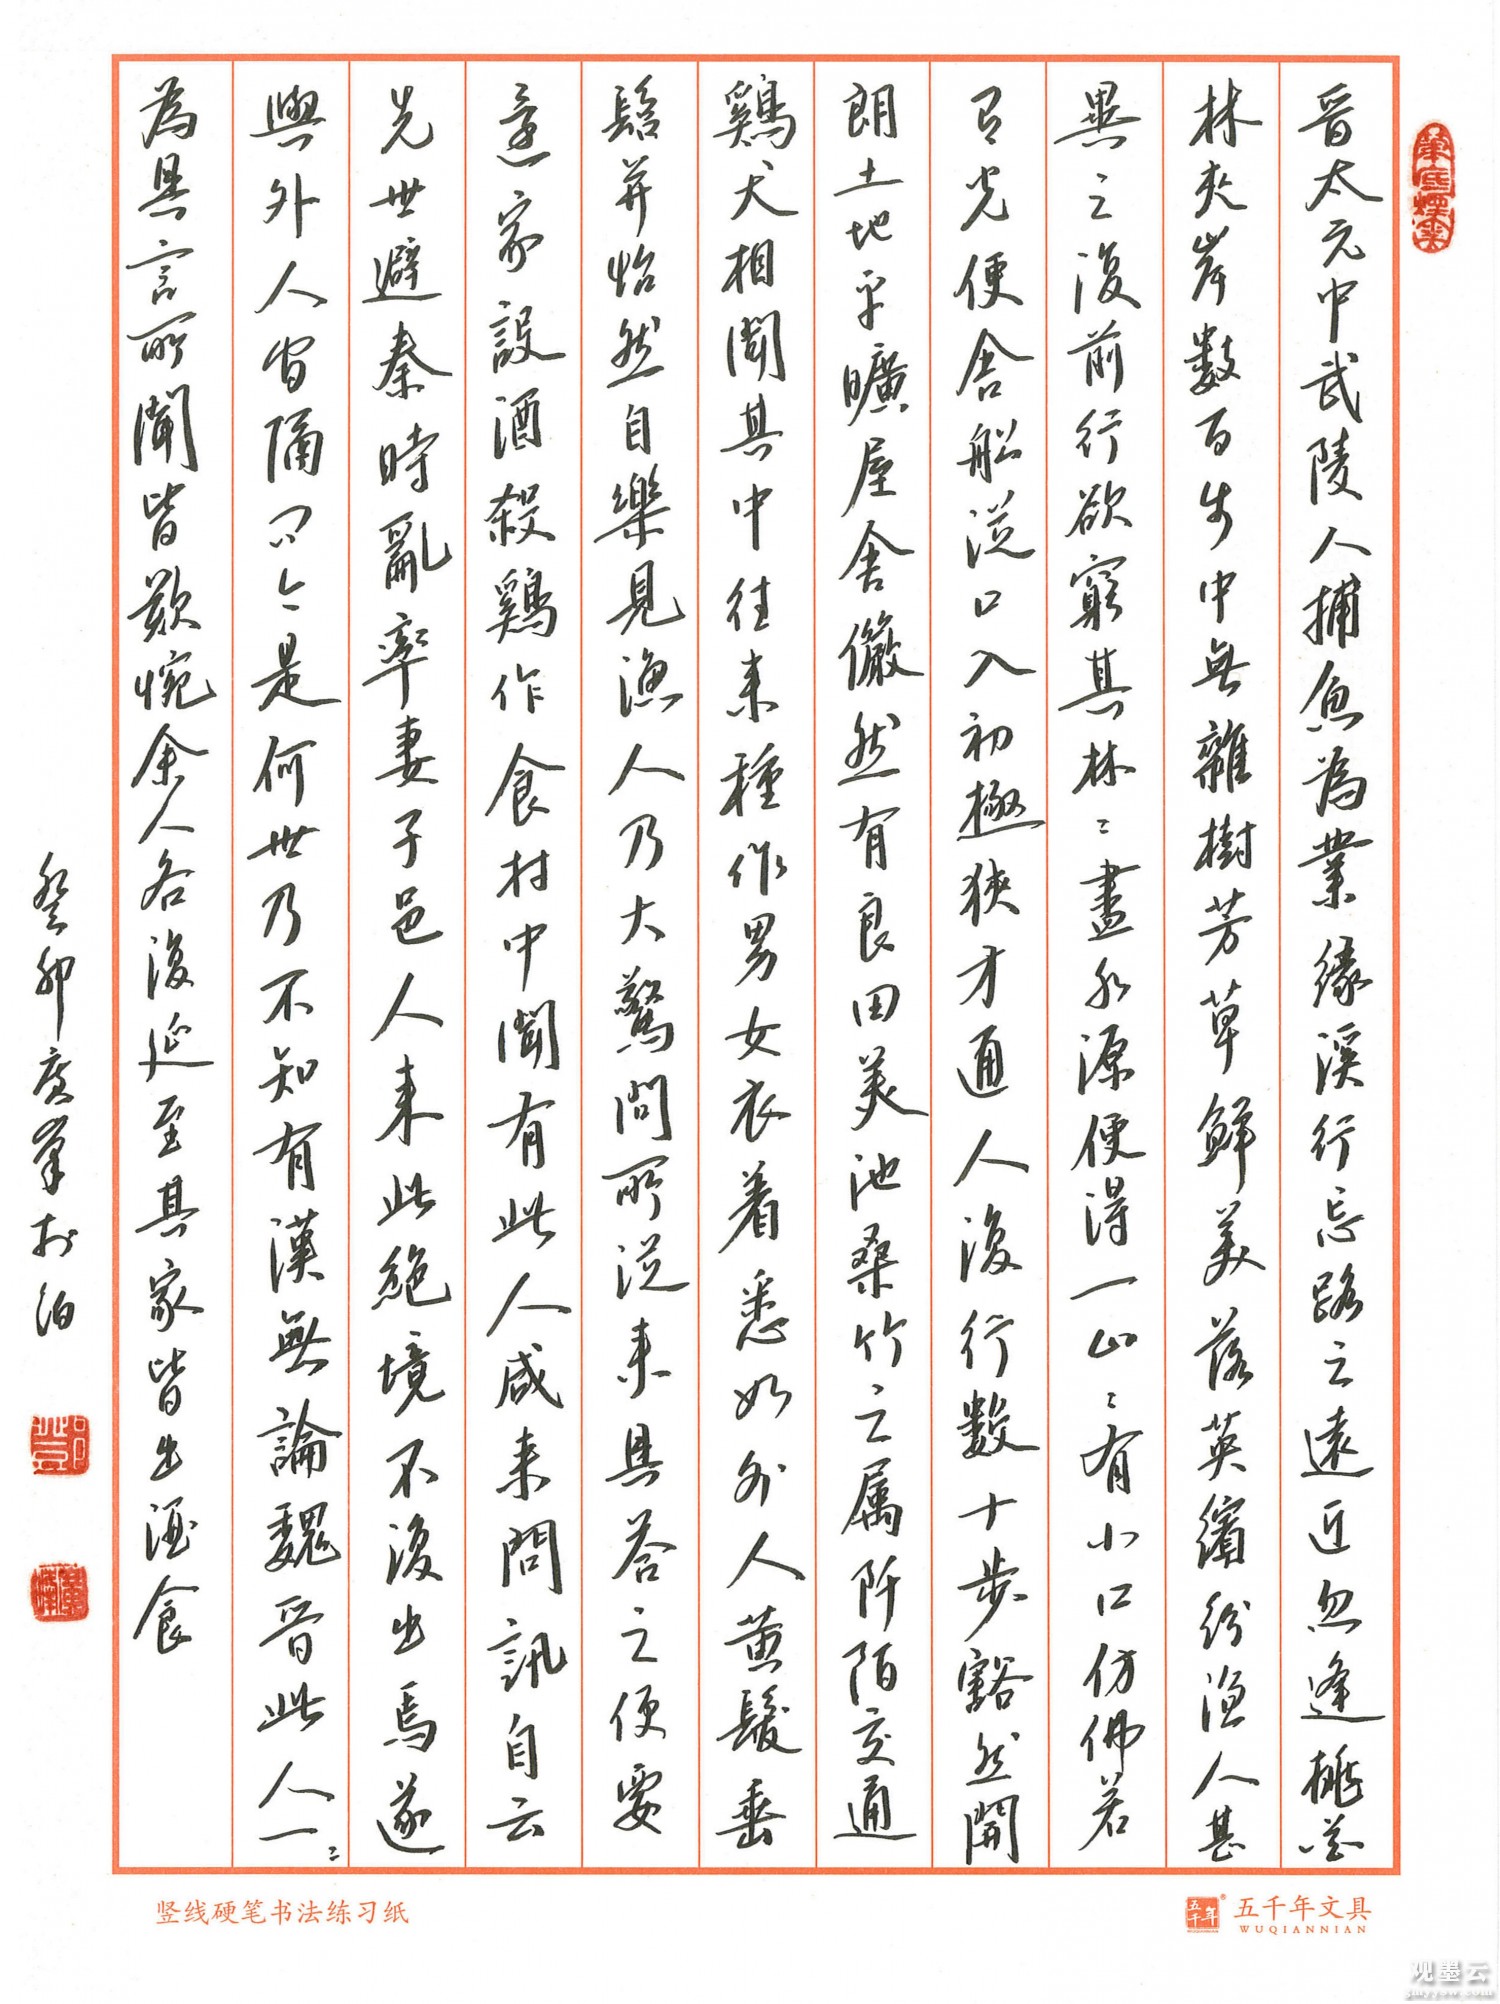 筆底煙雲
晋太元中武陵人捕魚為業緣溪行忘路之遠近忽逢桃花
林夾岸數百步中無雜樹芳草鮮美落英繽紛漁人甚
異之復前行欲窮其林〻盡水源便得一山〻有小口仿佛若
有光便舍船從口入初極狹才通人復行數十步豁然開
朗土地平曠屋舍儼然有良田美池桑竹之属阡陌交通
鷄犬相聞其中往来種作男女衣着悉如外人黄髮垂
髫并怡然自樂見漁人乃大驚問所從来具答之便要
還家設酒殺鷄作食村中聞有此人咸来問訊自云
先世避秦時亂率妻子邑人来此絶境不復出焉遂
與外人間隔問今是何世乃不知有漢無論魏晋此人一〻
為具言所聞皆歎惋余人各復延至其家皆出酒食
癸卯夏筆於泊
竖线硬笔书法练习纸
五千年 ® 五千年文具
WUQIANNIAN
观墨云